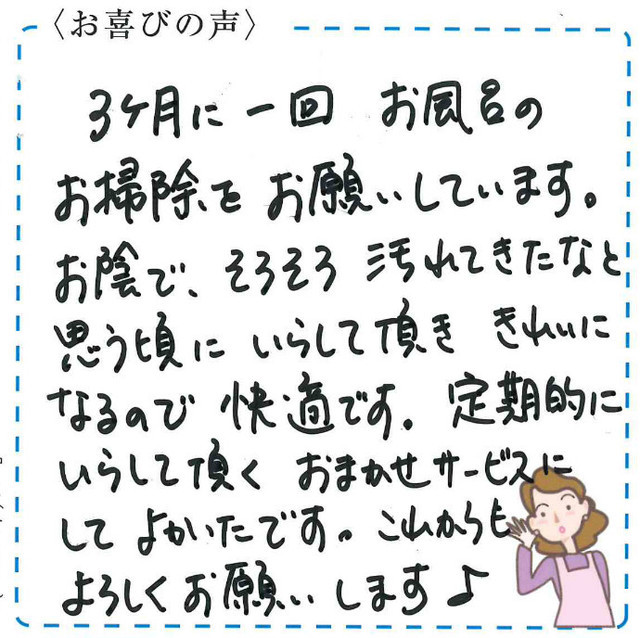 〈お喜びの声〉
3ヶ月に一回 お風呂の
お掃除を お願いしています。
お陰で、そろそろ 汚れてきたなと
思う頃に いらして頂き きれいに
なるので 快適です。定期的に
いらして頂く おまかせサービスに
して よかいたです。これからも
よろしくお願いします♪